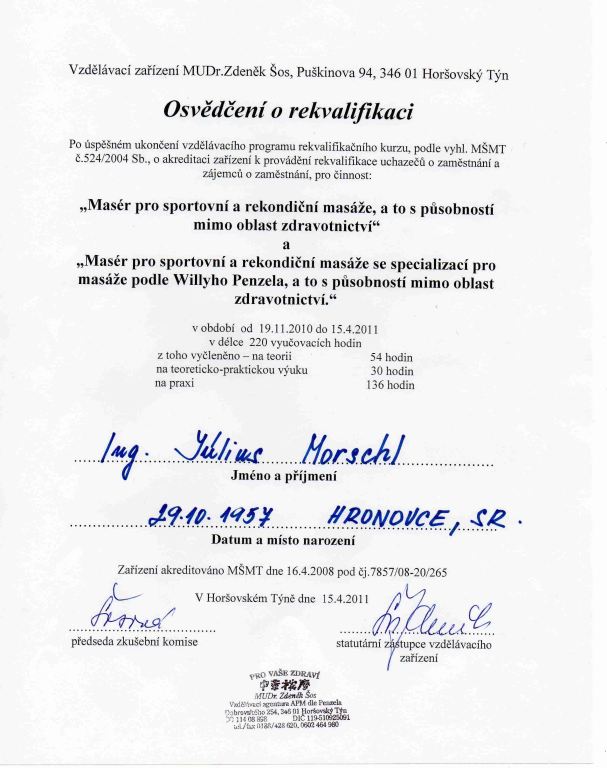 Vzdělávací zařízení MUDr.Zdeněk Šos, Puškinova 94, 346 01 Horšovský Týn
Osvědčení o rekvalifikaci
Po úspěšném ukončení vzdělávacího programu rekvalifikačního kurzu, podle vyhl. MŠMT
č.524/2004 Sb., o akreditaci zařízení k provádění rekvalifikace uchazečů o zaměstnání a
zájemců o zaměstnání, pro činnost:
„Masér pro sportovní a rekondiční masáže, a to s působností
mimo oblast zdravotnictví“
a
„Masér pro sportovní a rekondiční masáže se specializací pro
masáže podle Willyho Penzela, a to s působností mimo oblast
zdravotnictví.“
v období od 19.11.2010 do 15.4.2011
v délce 220 vyučovacích hodin
z toho vyčleněno – na teorii 54 hodin
na teoreticko-praktickou výuku 30 hodin
na praxi 136 hodin
Ing. Július Morschl
Jméno a příjmení
29.10.1957 HRONOVCE, SR.
Datum a místo narození
Zařízení akreditováno MŠMT dne 16.4.2008 pod čj.7857/08-20/265
V Horšovském Týně dne 15.4.2011
předseda zkušební komise
statutární zástupce vzdělávacího
zařízení
PRO VAŠE ZDRAVÍ
MUDr. Zdeněk Šos
Vzdělávací agentura APM dle Penzela
Dobrovského 254, 346 01 Horšovský Týn
114 08 898 DIČ 119-510925091
tel./fax 0188/428 620, 0602 464 980